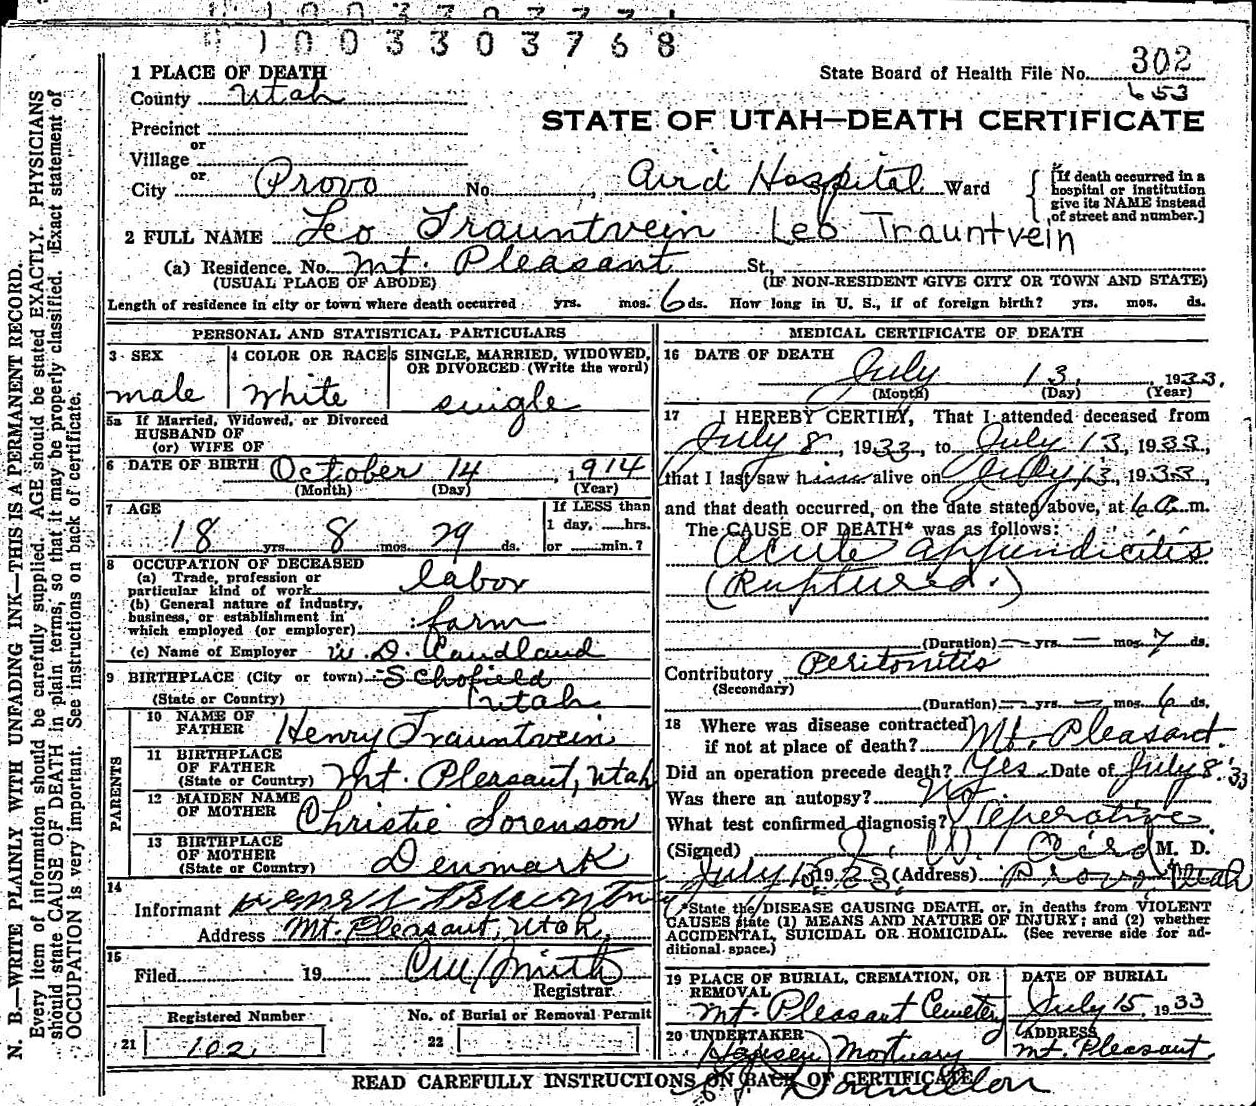 1 0 0 3 3 0 3 7 6 8
1 PLACE OF DEATH
State Board of Health File No. 302
653
County Utah
STATE OF UTAH—DEATH CERTIFICATE
Precinct
or
Village
or
City Provo No. Aird Hospital Ward
[If death occurred in a hospital or institution give its NAME instead of street and number.]
2 FULL NAME Leo Trauntvein Leo Trauntvein
(a) Residence. No. Mt. Pleasant St.
(USUAL PLACE OF ABODE) (IF NON-RESIDENT GIVE CITY OR TOWN AND STATE)
Length of residence in city or town where death occurred yrs. mos. 6 ds. How long in U. S., if of foreign birth? yrs. mos. ds.
PERSONAL AND STATISTICAL PARTICULARS
3 SEX
male
4 COLOR OR RACE
White
5 SINGLE, MARRIED, WIDOWED, OR DIVORCED (Write the word)
single
5a If Married, Widowed, or Divorced
HUSBAND OF
(or) WIFE OF
6 DATE OF BIRTH October 14, 1914
(Month) (Day) (Year)
7 AGE
18 yrs. 8 mos. 29 ds.
If LESS than
1 day, hrs.
or min.?
8 OCCUPATION OF DECEASED
(a) Trade, profession or
particular kind of work labor
(b) General nature of industry,
business, or establishment in
which employed (or employer) farm
(c) Name of Employer W. D. Candland
9 BIRTHPLACE (City or town) Schofield
(State or Country) Utah
PARENTS
10 NAME OF FATHER Henry Trauntvein
11 BIRTHPLACE OF FATHER
(State or Country) Mt. Pleasant, Utah
12 MAIDEN NAME OF MOTHER Christie Sorenson
13 BIRTHPLACE OF MOTHER
(State or Country) Denmark
14
Informant
Address Mt. Pleasant, Utah
15
Filed 19 Smith
Registrar
Registered Number No. of Burial or Removal Permit
21 102 22
MEDICAL CERTIFICATE OF DEATH
16 DATE OF DEATH
July 13, 1933.
(Month) (Day) (Year)
17 I HEREBY CERTIFY, That I attended deceased from
July 8, 1933, to July 13, 1933,
that I last saw him alive on July 13, 1933,
and that death occurred, on the date stated above, at 6 a. m.
The CAUSE OF DEATH* was as follows:
Acute appendicitis
(Ruptured.)
(Duration) — yrs. — mos. 7 ds.
Contributory Peritonitis
(Secondary)
(Duration) — yrs. — mos. 6 ds.
18 Where was disease contracted
if not at place of death? Mt. Pleasant.
Did an operation precede death? Yes Date of July 8 '33
Was there an autopsy? No.
What test confirmed diagnosis? Operative
(Signed) J. W. Aird M. D.
July 1933 (Address) Provo Utah
*State the DISEASE CAUSING DEATH, or, in deaths from VIOLENT
CAUSES state (1) MEANS AND NATURE OF INJURY; and (2) whether
ACCIDENTAL, SUICIDAL OR HOMICIDAL. (See reverse side for ad-
ditional space.)
19 PLACE OF BURIAL, CREMATION, OR REMOVAL
Mt. Pleasant Cemetery
DATE OF BURIAL
July 15, 1933
20 UNDERTAKER
Hansen Mortuary
ADDRESS
Mt. Pleasant
READ CAREFULLY INSTRUCTIONS ON BACK OF CERTIFICATE
N. B.—WRITE PLAINLY WITH UNFADING INK—THIS IS A PERMANENT RECORD.
Every item of information should be carefully supplied. AGE should be stated EXACTLY. PHYSICIANS
should state CAUSE OF DEATH in plain terms, so that it may be properly classified. Exact statement of
OCCUPATION is very important. See instructions on back of certificate.